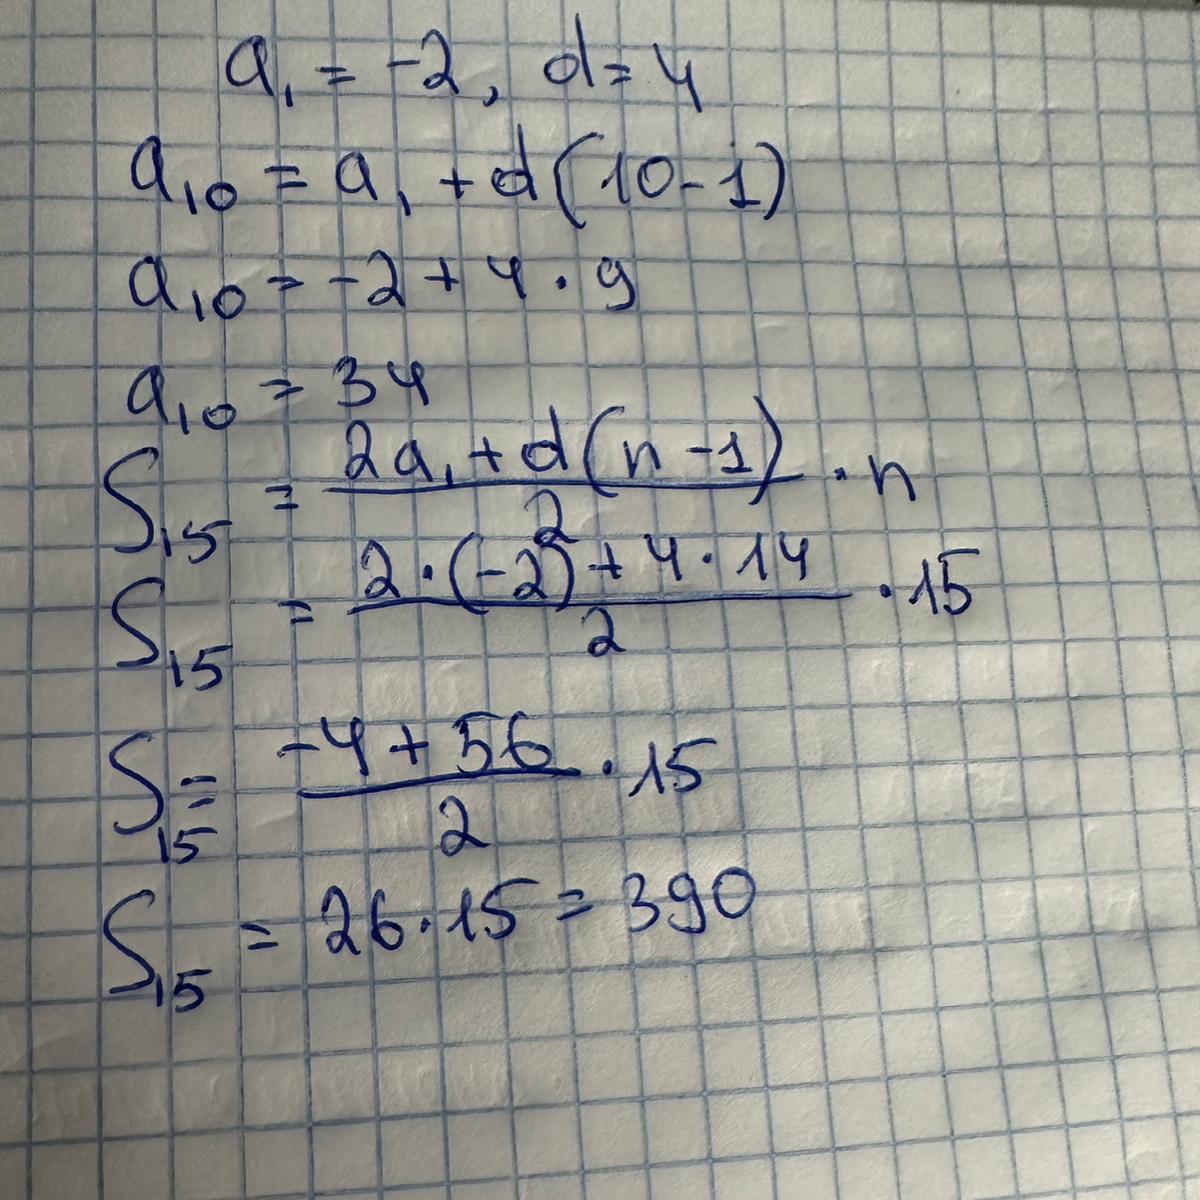 a₁ = -2, d = 4
a₁₀ = a₁ + d(10-1)
a₁₀ = -2 + 4 · 9
a₁₀ = 34
S₁₅ = (2a₁ + d(n-1))/2 · n
S₁₅ = (2·(-2) + 4·14)/2 · 15
S₁₅ = (-4 + 56)/2 · 15
S₁₅ = 26·15 = 390